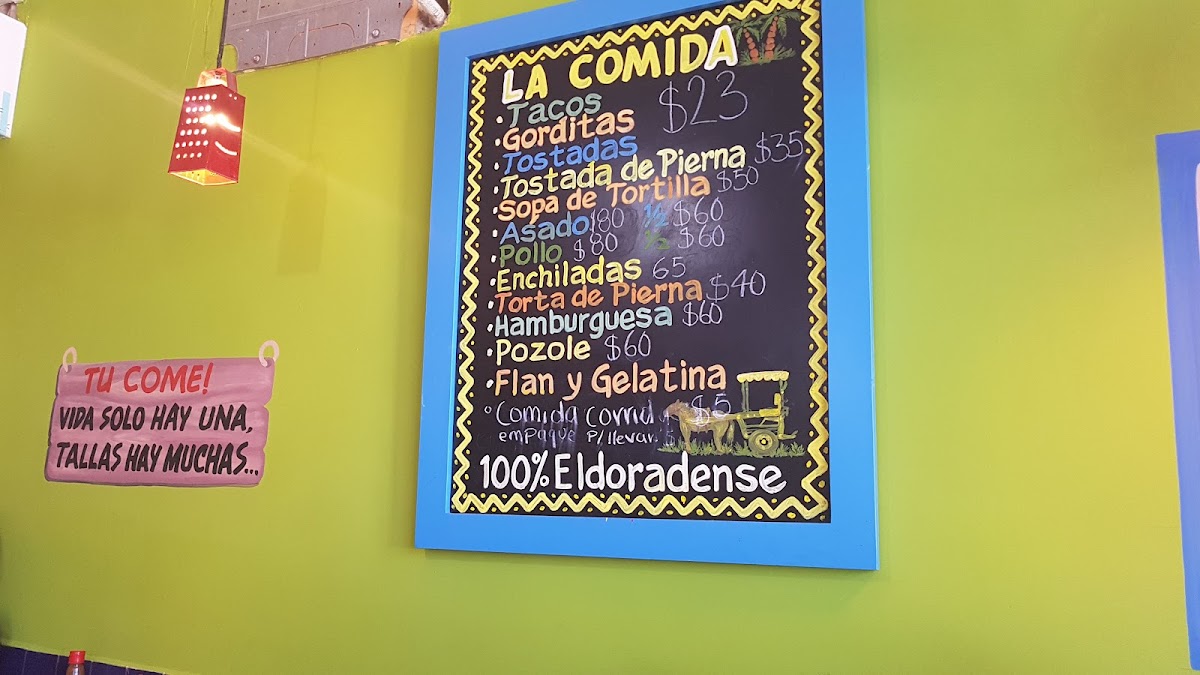 LA COMIDA
· Tacos
· Gorditas $23
· Tostadas
· Tostada de Pierna $35
· Sopa de Tortilla $50
· Asado 180 ½ $60
· Pollo $80 ½ $60
· Enchiladas 65
· Torta de Pierna $40
· Hamburguesa $60
· Pozole $60
· Flan y Gelatina
° Comida corrida $5
empaque P/llevar
100% Eldoradense
TU COME!
VIDA SOLO HAY UNA,
TALLAS HAY MUCHAS...